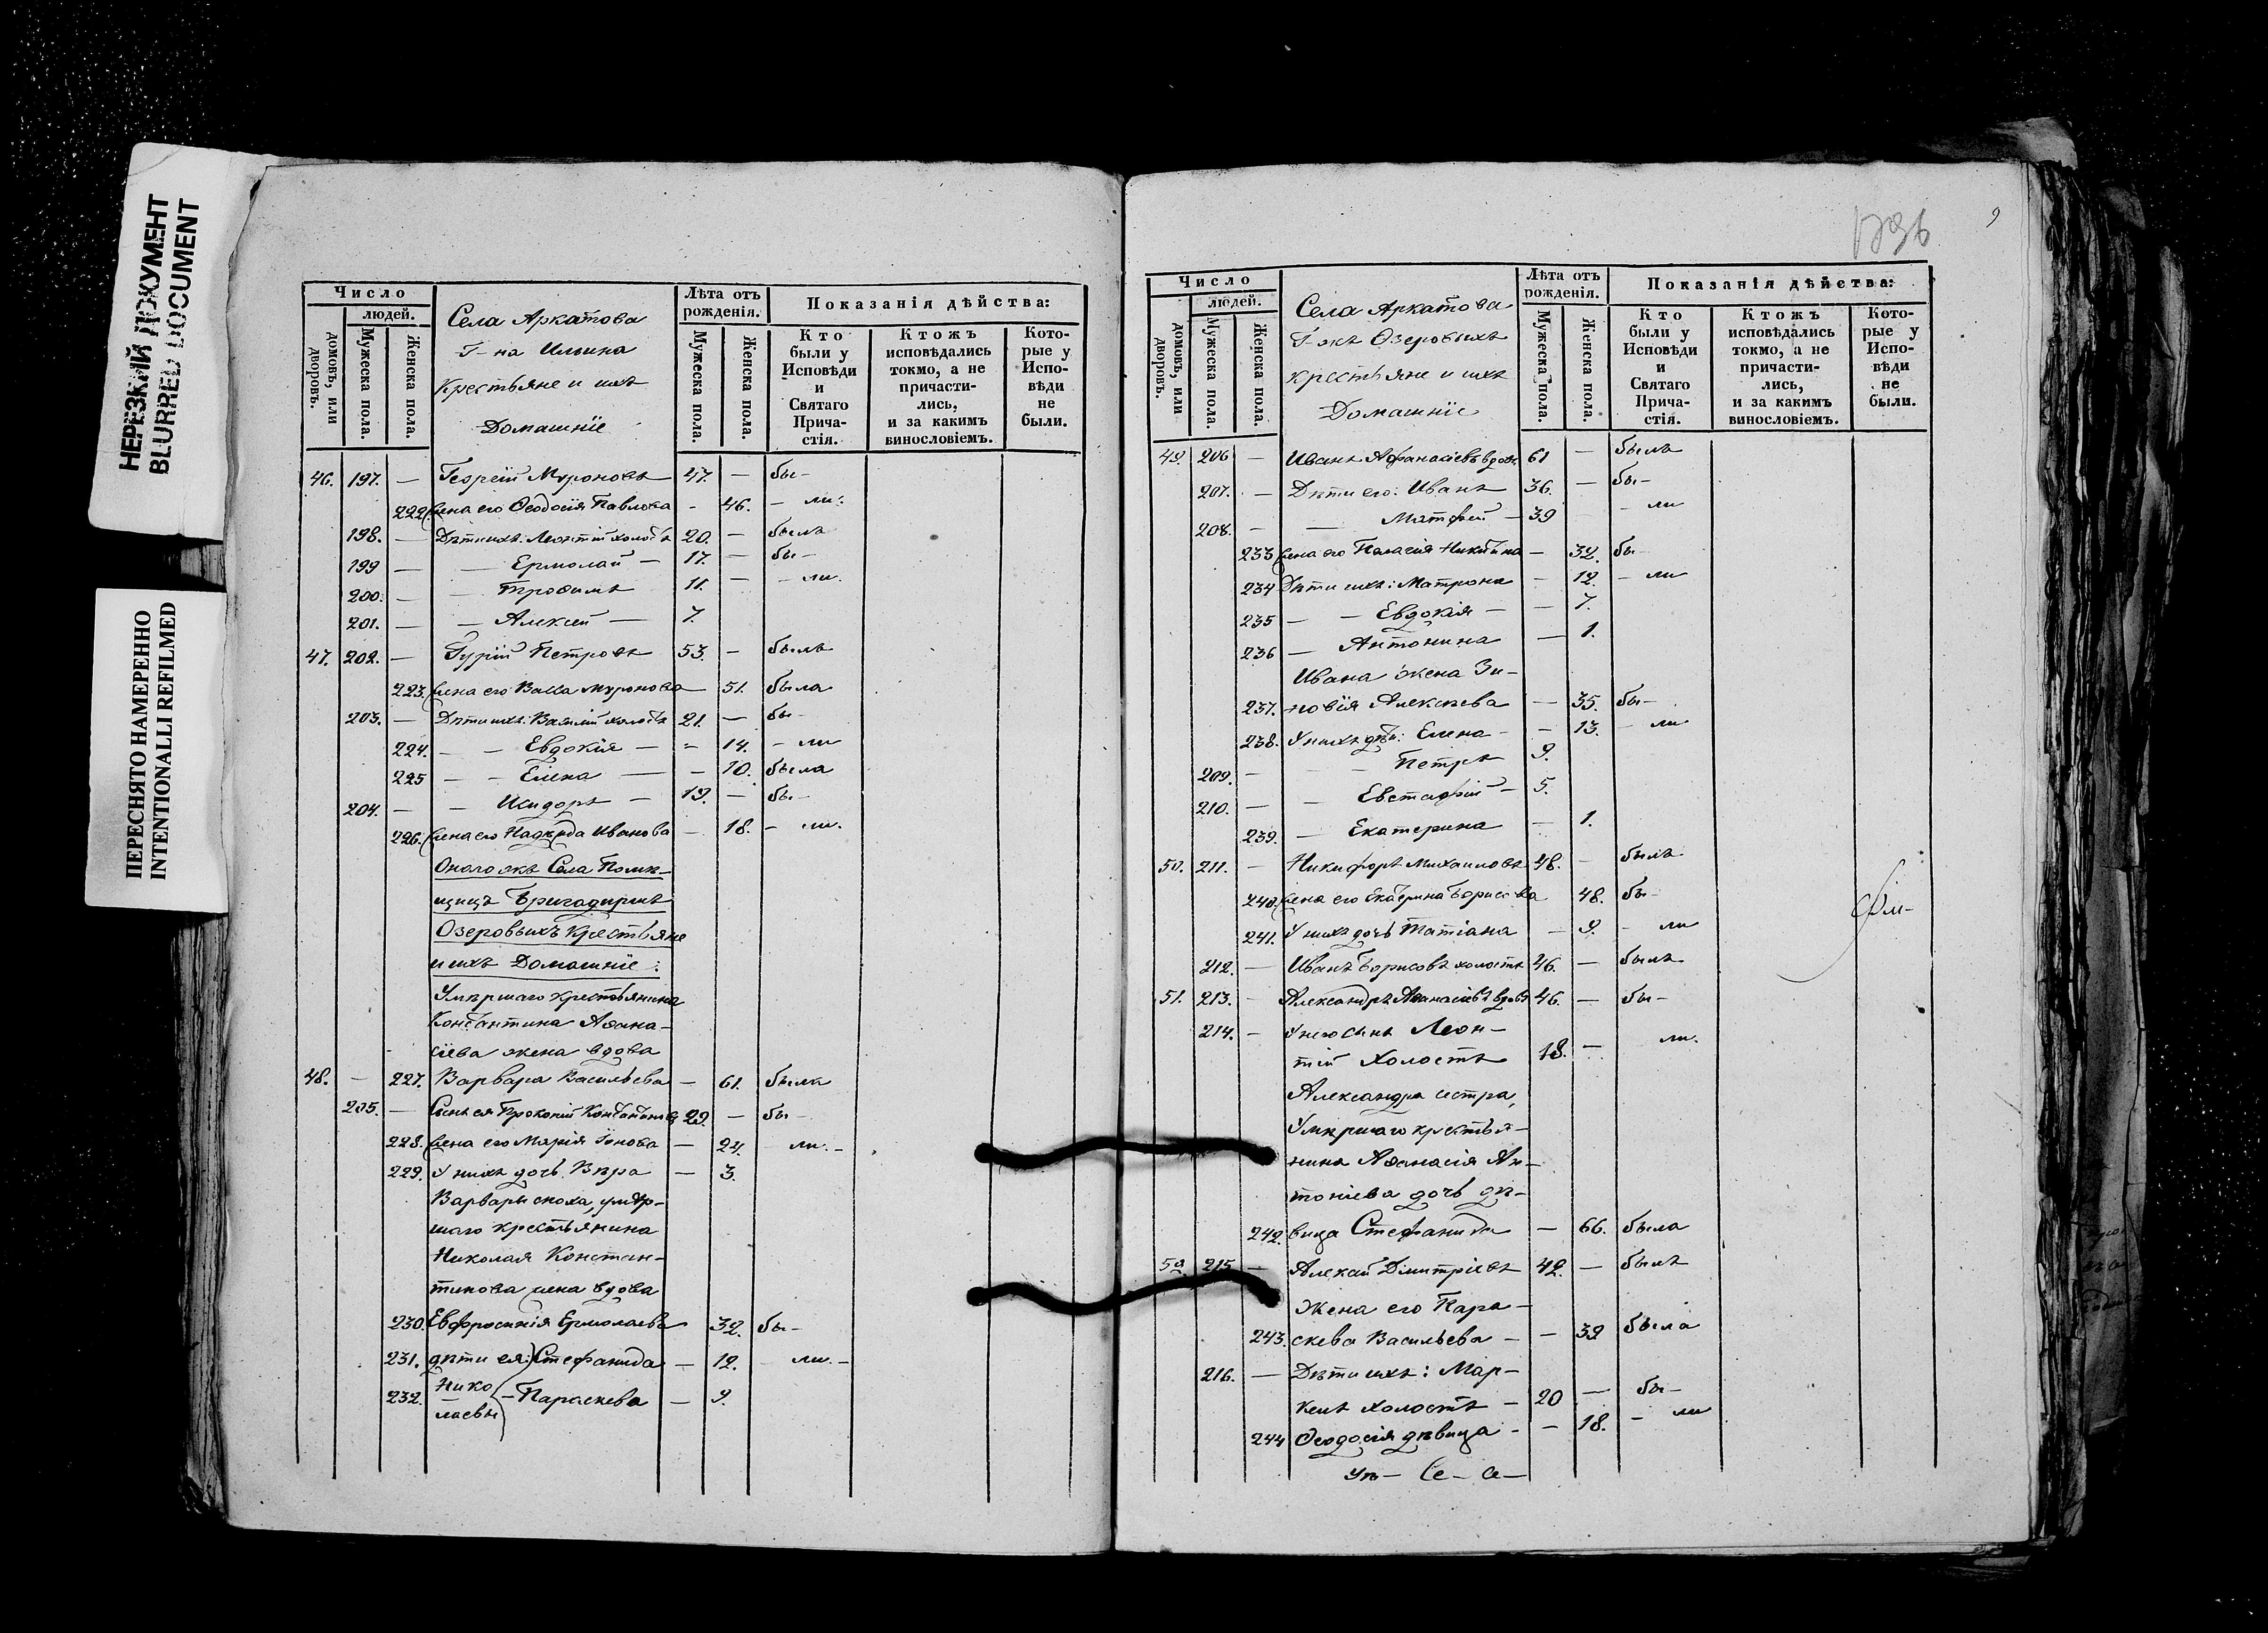 НЕРЕЗКИЙ ДОКУМЕНТ
BLURRED DOCUMENT
ПЕРЕСНЯТО НАМЕРЕННО
INTENTIONALLI REFILMED
Число
людей.
домовъ, или дворовъ.
Мужеска пола.
Женска пола.
Села Аркатова
Г-на Ильина
Крестьяне и ихъ
Домашнiе
Лѣта отъ рожденiя.
Мужеска пола.
Женска пола.
Показанiя дѣйства:
Кто были у Исповѣди и Святаго Прича-стiя.
Ктожъ исповѣдались токмо, а не причасти-лись, и за какимъ винословiемъ.
Кото-рые у Испо-вѣди не были.
46. 197. — Георгiй Мvроновъ 47. — бы-
222. Жена его Ѳеодосiя Павлова - 46. - ли.
198. — Дѣти ихъ: Леонтiй холостъ 20. — былъ
199 — — Ермолай — 17. — бы-
200. — — Троѳимъ 11. — - ли.
201. — — Алексѣй — 7.
47. 202. — Гурiй Петровъ 53. - былъ
223. Жена его Васса Мvронова — 51. была
203. — Дѣти ихъ: Василiй холостъ 21. — бы-
224. — — Евдокiя — - 14. - ли
225 — — Елена — - 10. была
204. — — Исидоръ — 19. — бы-
226. Жена его Надежда Иванова — 18. - ли.
Онаго же Села Помѣ-
щицъ Бригадиршъ
Озеровыхъ Крестьяне
и ихъ Домашнiе:
Умѣршаго крестьянина
Константина Аѳана-
сiева жена вдова
48. — 227. Варвара Васильева — 61. была
205. — Сынъ ея Прокопiй Константиновъ 29. — бы-
228. Жена его Марiя Iонова — 24. ли.-
229. У нихъ дочь Вѣра — 3.
Варвары сноха, умѣр-
шаго крестьянина
Николая Констан-
тинова жена вдова
230. Евфросинiя Ермолаева 32. бы-
231. дѣти ея: Стефанида — 12. ли.-
232. Нико
лаевы - Параскева — 9.
9
Число
людей.
домовъ, или дворовъ.
Мужеска пола.
Женска пола.
Села Аркатова
Г-жъ Озеровыхъ
крестьяне и ихъ
Домашнiе
Лѣта отъ рожденiя.
Мужеска пола.
Женска пола.
Показанiя дѣйства:
Кто были у Исповѣди и Святаго Прича-стiя.
Ктожъ исповѣдались токмо, а не причасти-лись, и за какимъ винословiемъ.
Кото-рые у Испо-вѣди не были.
49. 206 — Иванъ Афанасiевъ вдовъ 61 — былъ
207. — Дѣти его: Иванъ 36. — бы-
208. — — Матфей — 39 - ли
233 Жена его Пелагiя Никитина — 32. бы-
234 Дѣти ихъ: Матрона - 12. - ли
235 — — Евдокiя — — 7.
236 — Антонина — 1.
Ивана жена Зи-
237. новiя Алексѣева — 35. бы-
238. У нихъ дѣти: Елена - - 13. - ли
209. — — Петръ 9.
210. — - Евстафiй - 5.
239. — Екатерина — 1.
50. 211. — Никифоръ Михаиловъ 48. - былъ
240. Жена его Екатерина Борисова 48. бы-
241. У нихъ дочь Татiана — 9. - ли
212. — Иванъ Борисовъ холостъ 46. — былъ
51. 213. - Александръ Аѳанасiевъ вдовъ 46. — бы-
214. - У него сынъ Леон-
тiй Холостъ 18. — ли.
Александра сестра,
Умѣршаго крестья-
нина Аѳанасiя Ан-
тонiева дочь дѣ-
242. вица Стефанида — 66. была
52. 215 — Алексѣй Димитрiевъ 42. — былъ
Жена его Пара-
243. скева Васильева - - 39 была
216. — Дѣти ихъ: Мар-
келъ холостъ - 20 — бы-
244 Ѳеодосiя дѣвица - - 18. - ли